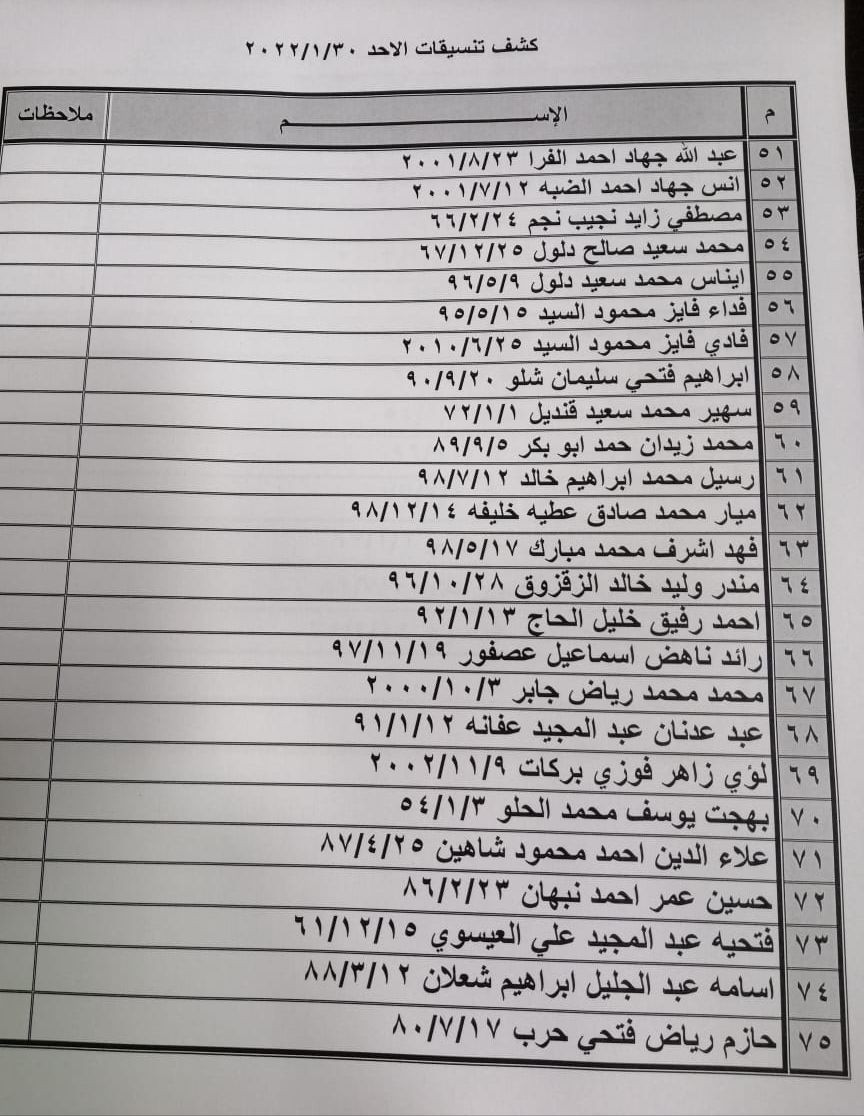 كشف تنسيقات الاحد ٢٠٢٢/١/٣٠
م الإســــم ملاحظات
٥١ عبد الله جهاد احمد الفرا ٢٠٠١/٨/٢٣
٥٢ انس جهاد احمد الضبه ٢٠٠١/٧/١٢
٥٣ مصطفي زايد نجيب نجم ٦٦/٢/٢٤
٥٤ محمد سعيد صالح دلول ٦٧/١٢/٢٥
٥٥ ايناس محمد سعيد دلول ٩٦/٥/٩
٥٦ فداء فايز محمود السيد ٩٥/٥/١٥
٥٧ فادي فايز محمود السيد ٢٠١٠/٦/٢٥
٥٨ ابراهيم فتحي سليمان شلو ٩٠/٩/٢٠
٥٩ سهير محمد سعيد قنديل ٧٢/١/١
٦٠ محمد زيدان حمد ابو بكر ٨٩/٩/٥
٦١ رسيل محمد ابراهيم خالد ٩٨/٧/١٢
٦٢ ميار محمد صادق عطيه خليفه ٩٨/١٢/١٤
٦٣ فهد اشرف محمد مبارك ٩٨/٥/١٧
٦٤ مندر وليد خالد الزقزوق ٩٦/١٠/٢٨
٦٥ احمد رفيق خليل الحاج ٩٢/١/١٣
٦٦ رائد ناهض اسماعيل عصفور ٩٧/١١/١٩
٦٧ محمد محمد رياض جابر ٢٠٠٠/١٠/٣
٦٨ عبد عدنان عبد المجيد عفانه ٩١/١/١٢
٦٩ لؤي زاهر فوزي بركات ٢٠٠٢/١١/٩
٧٠ بهجت يوسف محمد الحلو ٥٤/١/٣
٧١ علاء الدين احمد محمود شاهين ٨٧/٤/٢٥
٧٢ حسين عمر احمد نبهان ٨٦/٢/٢٣
٧٣ فتحيه عبد المجيد علي العيسوي ٦١/١٢/١٥
٧٤ اسامه عبد الجليل ابراهيم شعلان ٨٨/٣/١٢
٧٥ حازم رياض فتحي حرب ٨٠/٧/١٧